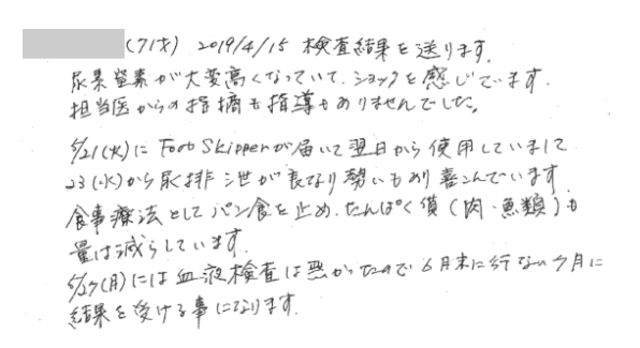 (71才) 2019/4/15 検査結果を送ります.
尿素窒素が大変高くなっていて、ショックを感じています.
担当医からの指摘も指導もありませんでした。
5/21(火)に Foot Skipperが届いて翌日から使用していまして
23(水)から尿排泄が長なり勢いもあり喜こんでいます
食事療法としてパン食を止め、たんぱく質(肉・魚類)も
量は減らしています.
5/27(月)には血液検査は悪かったので6月末に行ない7月に
結果を受ける事になります.